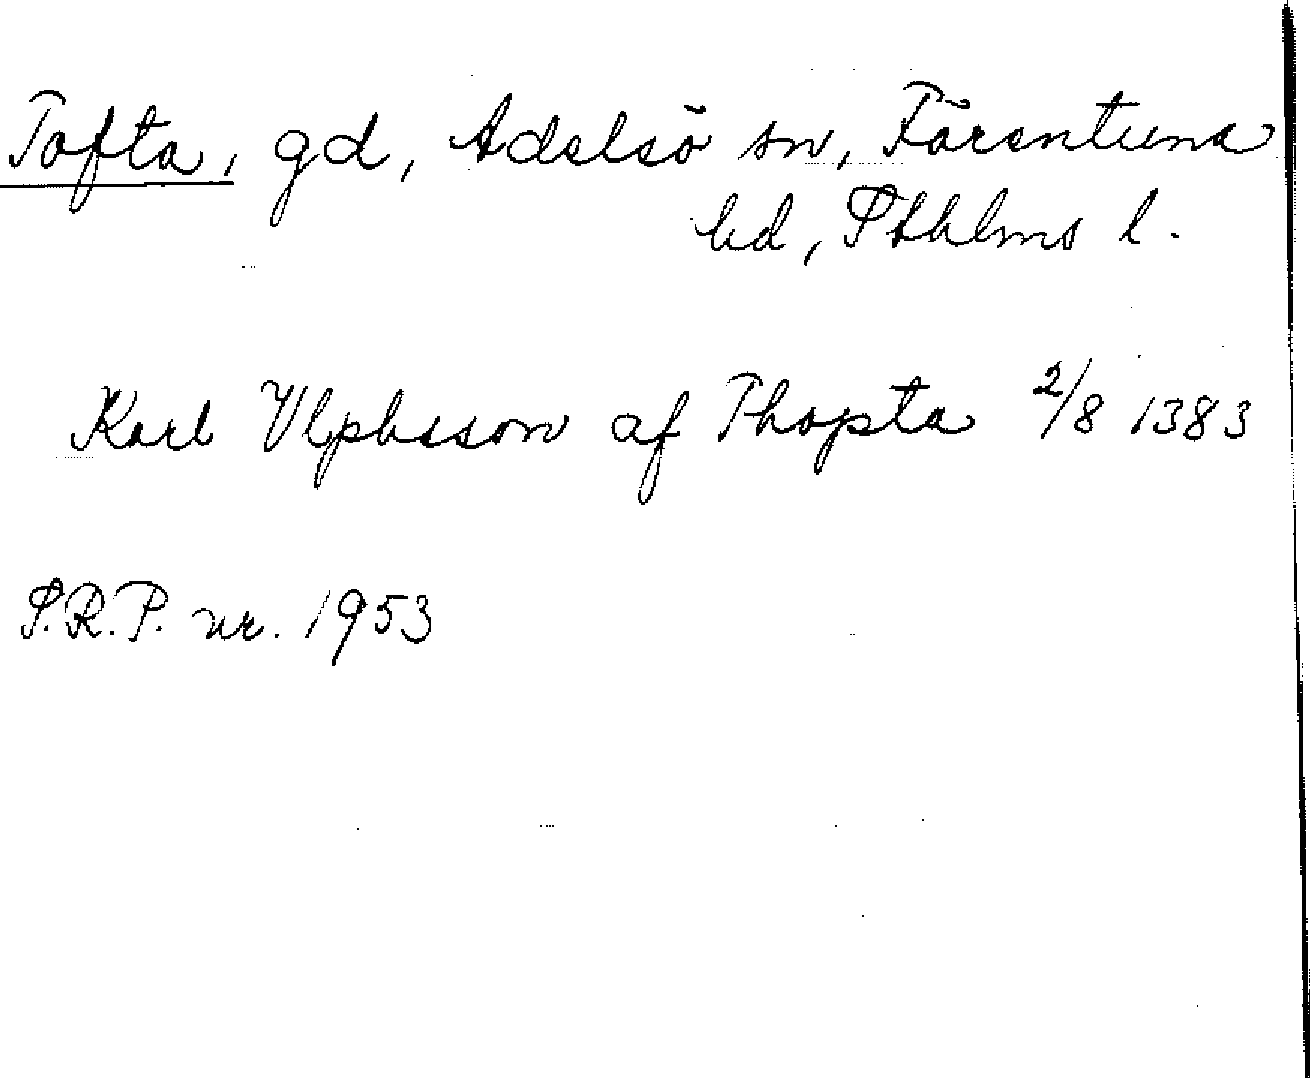 Tofta, gd, Adelsö sn, Färentuna
hd, Sthlms l.
Karl Ulphsson af Thopta 2/8 1383
S.R.P. nr. 1953